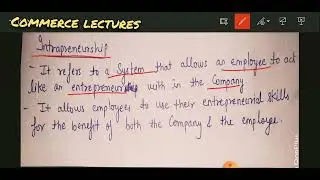 Commerce lectures
Intrapreneurship
- It refers to a System that allows an employee to act
like an entrepreneur with in the Company.
- It allows employees to use their entrepreneurial skills
for the benefit of both the Company & the employee.